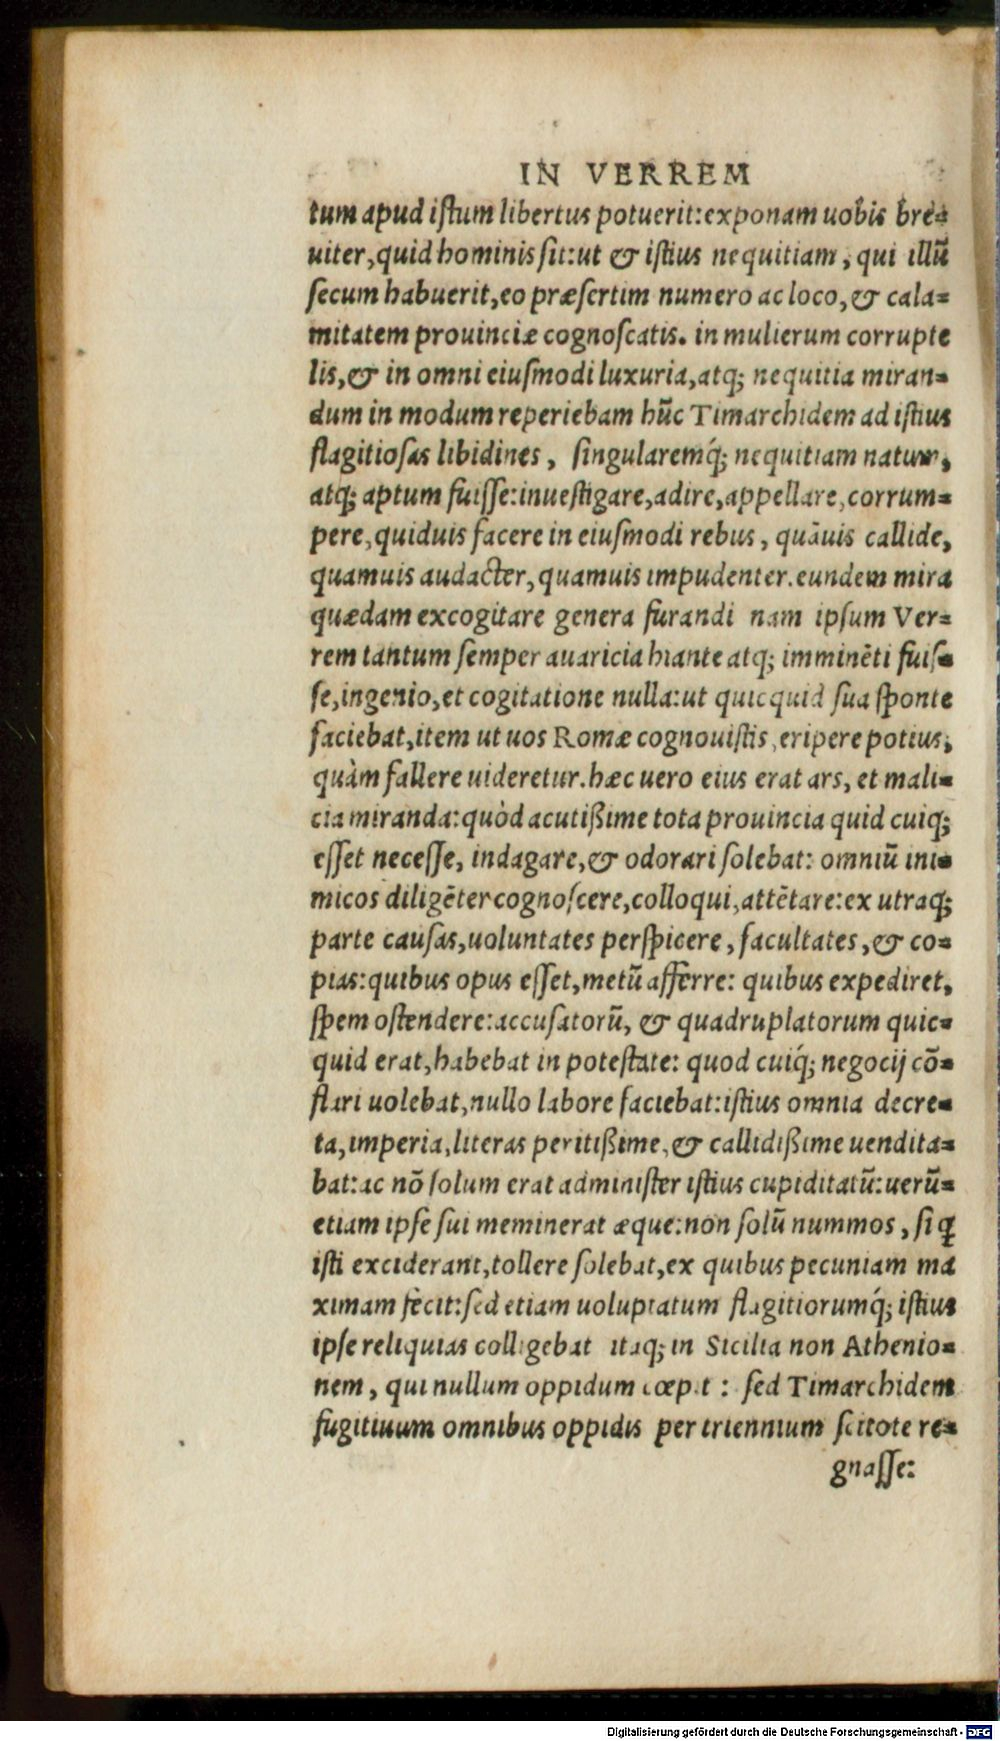 IN VERREM
tum apud iſtum libertus potuerit: exponam uobis bre-
uiter, quid hominis ſit: ut & iſtius nequitiam, qui illū
ſecum habuerit, eo præſertim numero ac loco, & cala-
mitatem prouinciæ cognoſcatis. in mulierum corrupte
lis, & in omni eiuſmodi luxuria, atq; nequitia miran-
dum in modum reperiebam hūc Timarchidem ad iſtius
flagitioſas libidines, ſingularemq́; nequitiam natum,
atq; aptum fuiſſe: inueſtigare, adire, appellare, corrum-
pere, quiduis facere in eiuſmodi rebus, quāuis callide,
quamuis audacter, quamuis impudenter. eundem mira
quædam excogitare genera furandi nam ipſum Ver-
rem tantum ſemper auaricia hiante atq; imminēti fuiſ-
ſe, ingenio, et cogitatione nulla: ut quicquid ſua ſponte
faciebat, item ut uos Romæ cognouiſtis, eripere potius,
quàm fallere uideretur. hæc uero eius erat ars, et mali-
cia miranda: quòd acutißime tota prouincia quid cuiq;
eſſet neceſſe, indagare, & odorari ſolebat: omniū ini-
micos diligēter cognoſcere, colloqui, attētare: ex utraq;
parte cauſas, uoluntates perſpicere, facultates, & co-
pias: quibus opus eſſet, metū afferre: quibus expediret,
ſpem oſtendere: accuſatorū, & quadruplatorum quic-
quid erat, habebat in poteſtate: quod cuiq́; negocij cō-
flari uolebat, nullo labore faciebat: iſtius omnia decre-
ta, imperia, literas peritißime, & callidißime uendita-
bat: ac nō ſolum erat adminiſter iſtius cupiditatū: uerū-
etiam ipſe ſui meminerat æque: non ſolū nummos, ſi ꝗ
iſti exciderant, tollere ſolebat, ex quibus pecuniam ma
ximam fecit: ſed etiam uoluptatum flagitiorumq́; iſtius
ipſe reliquias colligebat itaq; in Sicilia non Athenio-
nem, qui nullum oppidum cœpit : ſed Timarchidem
fugitiuum omnibus oppidis per triennium ſcitote re-
gnaſſe:
Digitalisierung gefördert durch die Deutsche Forschungsgemeinschaft - DFG